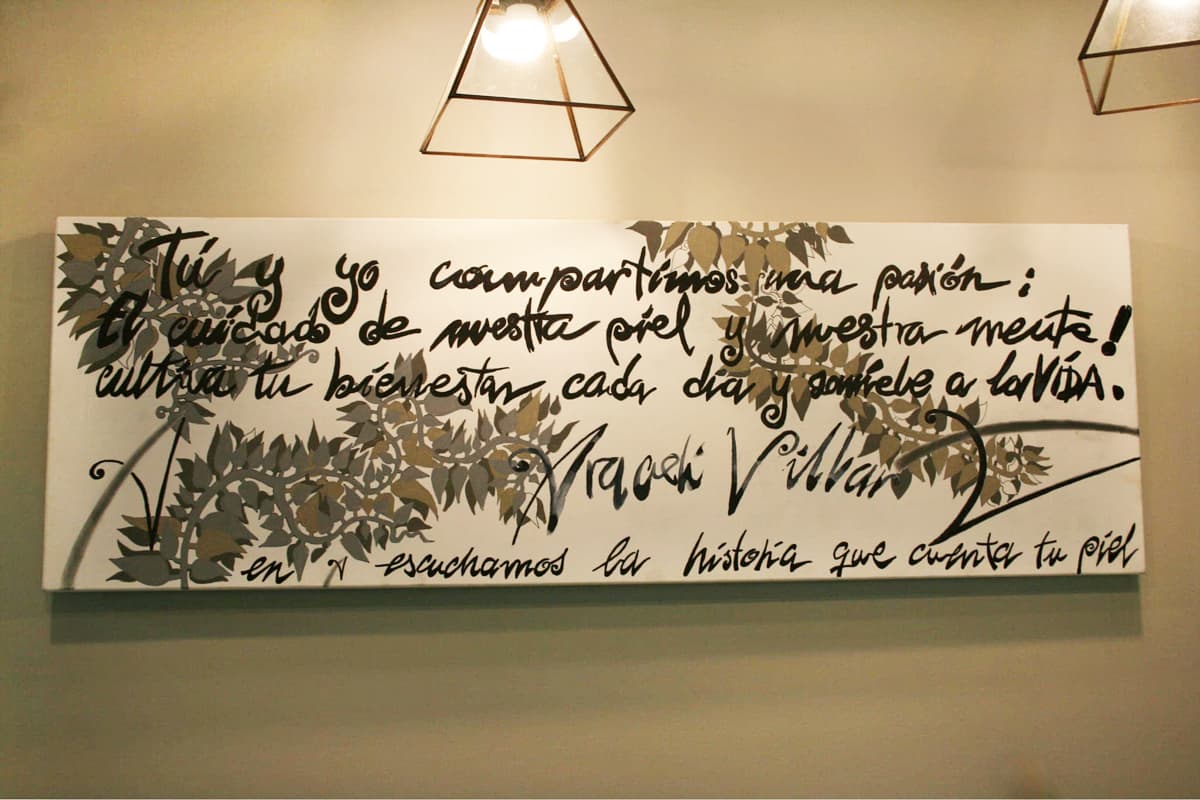 Tú y yo compartimos una pasión:
El cuidado de nuestra piel y nuestra mente!
cultiva tu bienestar cada día y sonríele a la VIDA.
Araceli Villar
en escuchamos la historia que cuenta tu piel